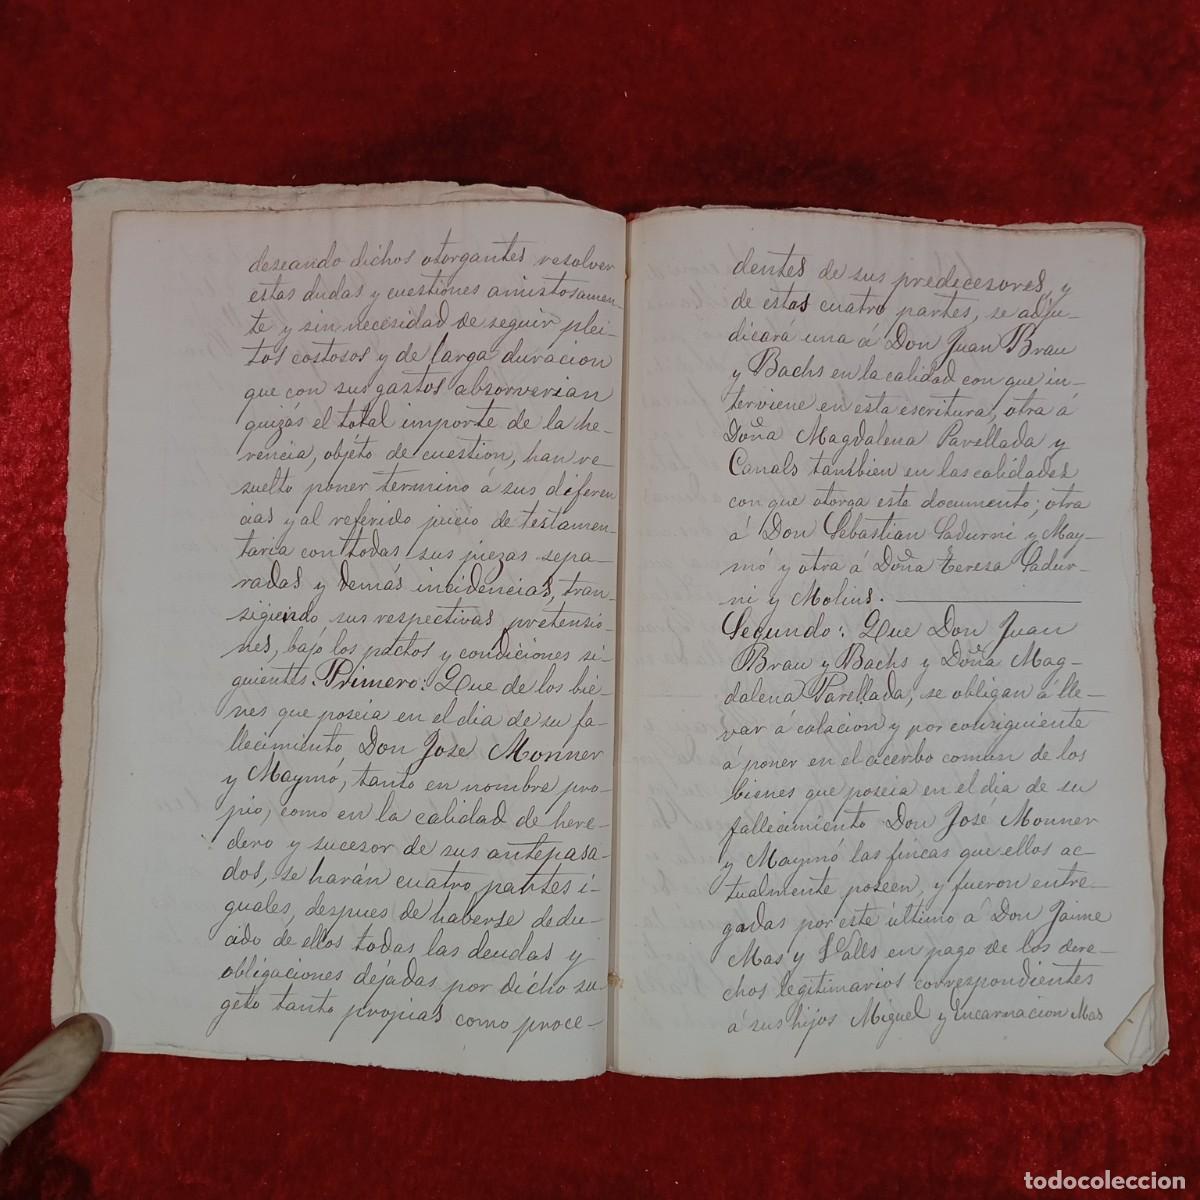 deseando dichos otorgantes resolver
estas dudas y cuestiones amistosamen-
te y sin necesidad de seguir plei-
tos costosos y de larga duracion
que con sus gastos absorverian
quizás el total importe de la he-
rencia, objeto de cuestion, han re-
suelto poner termino á sus diferen
cias y al referido juicio de testamen-
taria con todas sus piezas sepa-
radas y demás incidencias, tran-
sigiendo sus respectivas pretensio-
nes, bajo los pactos y condiciones si-
guientes. Primero: Que de los bie-
nes que poseia en el dia de su fa-
llecimiento Don José Monner
y Maymó, tanto en nombre pro-
pio, como en la calidad de here-
dero y sucesor de sus antepasa-
dos, se harán cuatro partes i-
guales, despues de haberse dedu-
cido de ellos todas las deudas y
obligaciones dejadas por dicho su-
geto tanto propias como proce-
dentes de sus predecesores, y
de estas cuatro partes, se adju-
dicará una á Don Juan Brau
y Bachs en la calidad con que in-
terviene en esta escritura, otra á
Doña Magdalena Parellada y
Canals tambien en las calidades
con que otorga este documento; otra
á Don Sebastian Sadurni y May-
mó y otra á Doña Teresa Sadur-
ni y Molins.
Segundo: Que Don Juan
Brau y Bachs y Doña Mag-
dalena Parellada, se obligan á lle-
var á colacion y por consiguiente
á poner en el acerbo común de los
bienes que poseia en el dia de su
fallecimiento Don José Monner
y Maymó las fincas que ellos ac-
tualmente poseen, y fueron entre-
gadas por este último á Don Jaime
Mas y Valls en pago de los dere-
chos legitimarios correspondientes
á sus hijos Miguel y Encarnacion Mas
todocoleccion